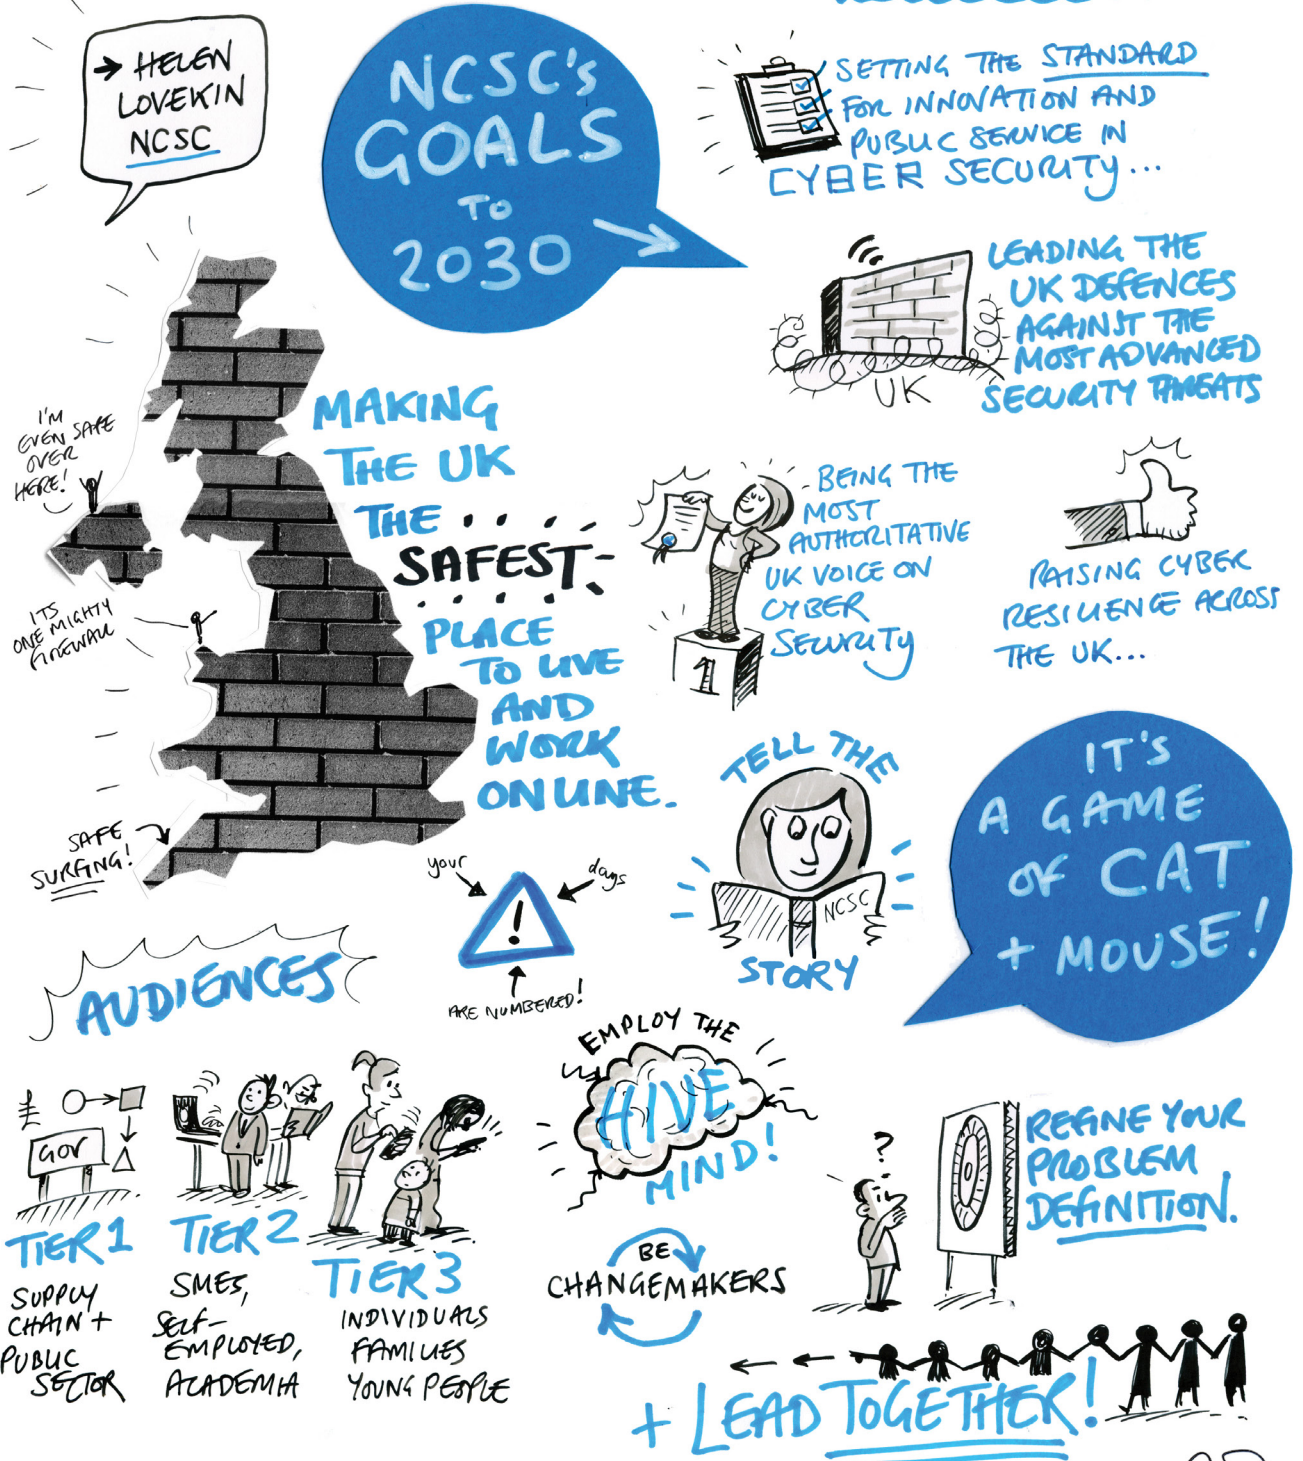 → HELEN
LOVEKIN
NCSC
NCSC's
GOALS
TO
2030
SETTING THE STANDARD
FOR INNOVATION AND
PUBLIC SERVICE IN
CYBER SECURITY...
LEADING THE
UK DEFENCES
AGAINST THE
MOST ADVANCED
SECURITY THREATS
UK
MAKING
THE UK
THE
SAFEST
PLACE
TO LIVE
AND
WORK
ONLINE.
I'M
EVEN SAFE
OVER
HERE!
ITS
ONE MIGHTY
FIREWALL
SAFE
SURFING!
- BEING THE
MOST
AUTHORITATIVE
UK VOICE ON
CYBER
SECURITY
1
RAISING CYBER
RESILIENCE ACROSS
THE UK...
TELL THE
NCSC
STORY
IT'S
A GAME
OF CAT
+ MOUSE!
your
days
!
ARE NUMBERED!
AUDIENCES
GOV
TIER 1
SUPPLY
CHAIN +
PUBLIC
SECTOR
TIER 2
SMES,
SELF-
EMPLOYED,
ACADEMIA
TIER 3
INDIVIDUALS
FAMILIES
YOUNG PEOPLE
EMPLOY THE
HIVE
MIND!
BE
CHANGEMAKERS
?
REFINE YOUR
PROBLEM
DEFINITION.
+ LEAD TOGETHER!